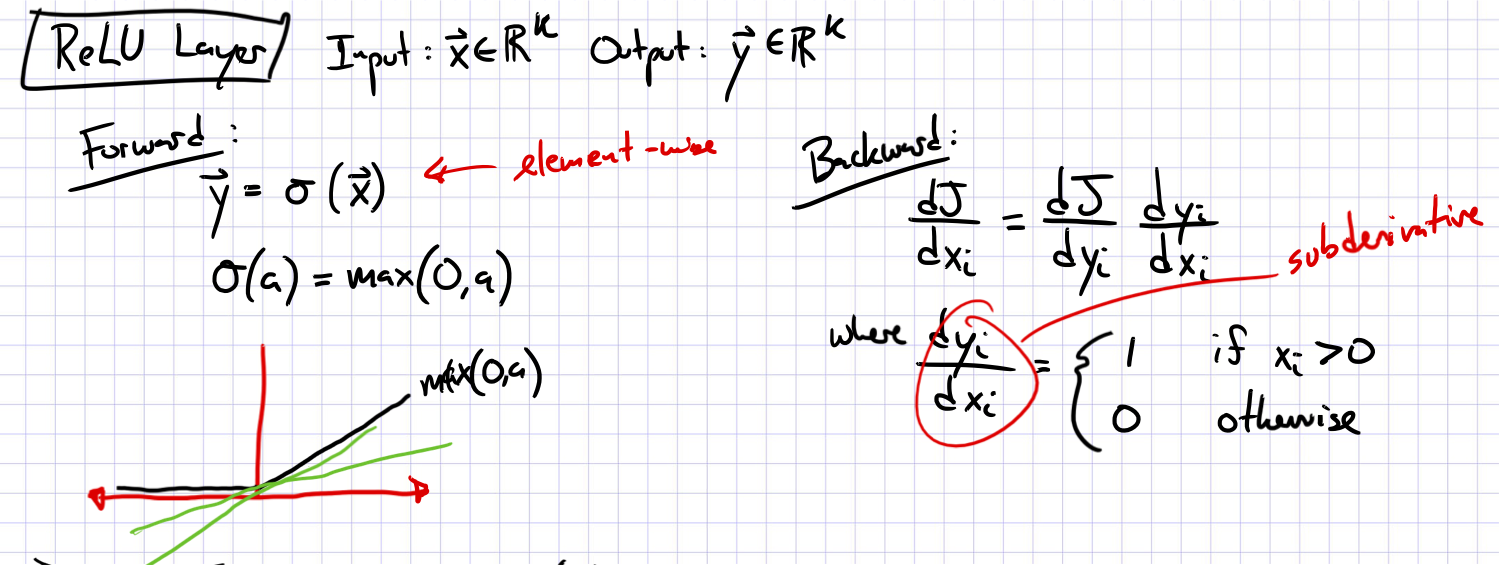 ReLU Layer Input: x⃗ ∈ ℝᴷ Output: y⃗ ∈ ℝᴷ
Forward:
y⃗ = σ(x⃗) ← element-wise
σ(a) = max(0,a)
max(0,a)
Backward:
dJ/dxᵢ = dJ/dyᵢ dyᵢ/dxᵢ
subderivative
where dyᵢ/dxᵢ = { 1 if xᵢ > 0
0 otherwise